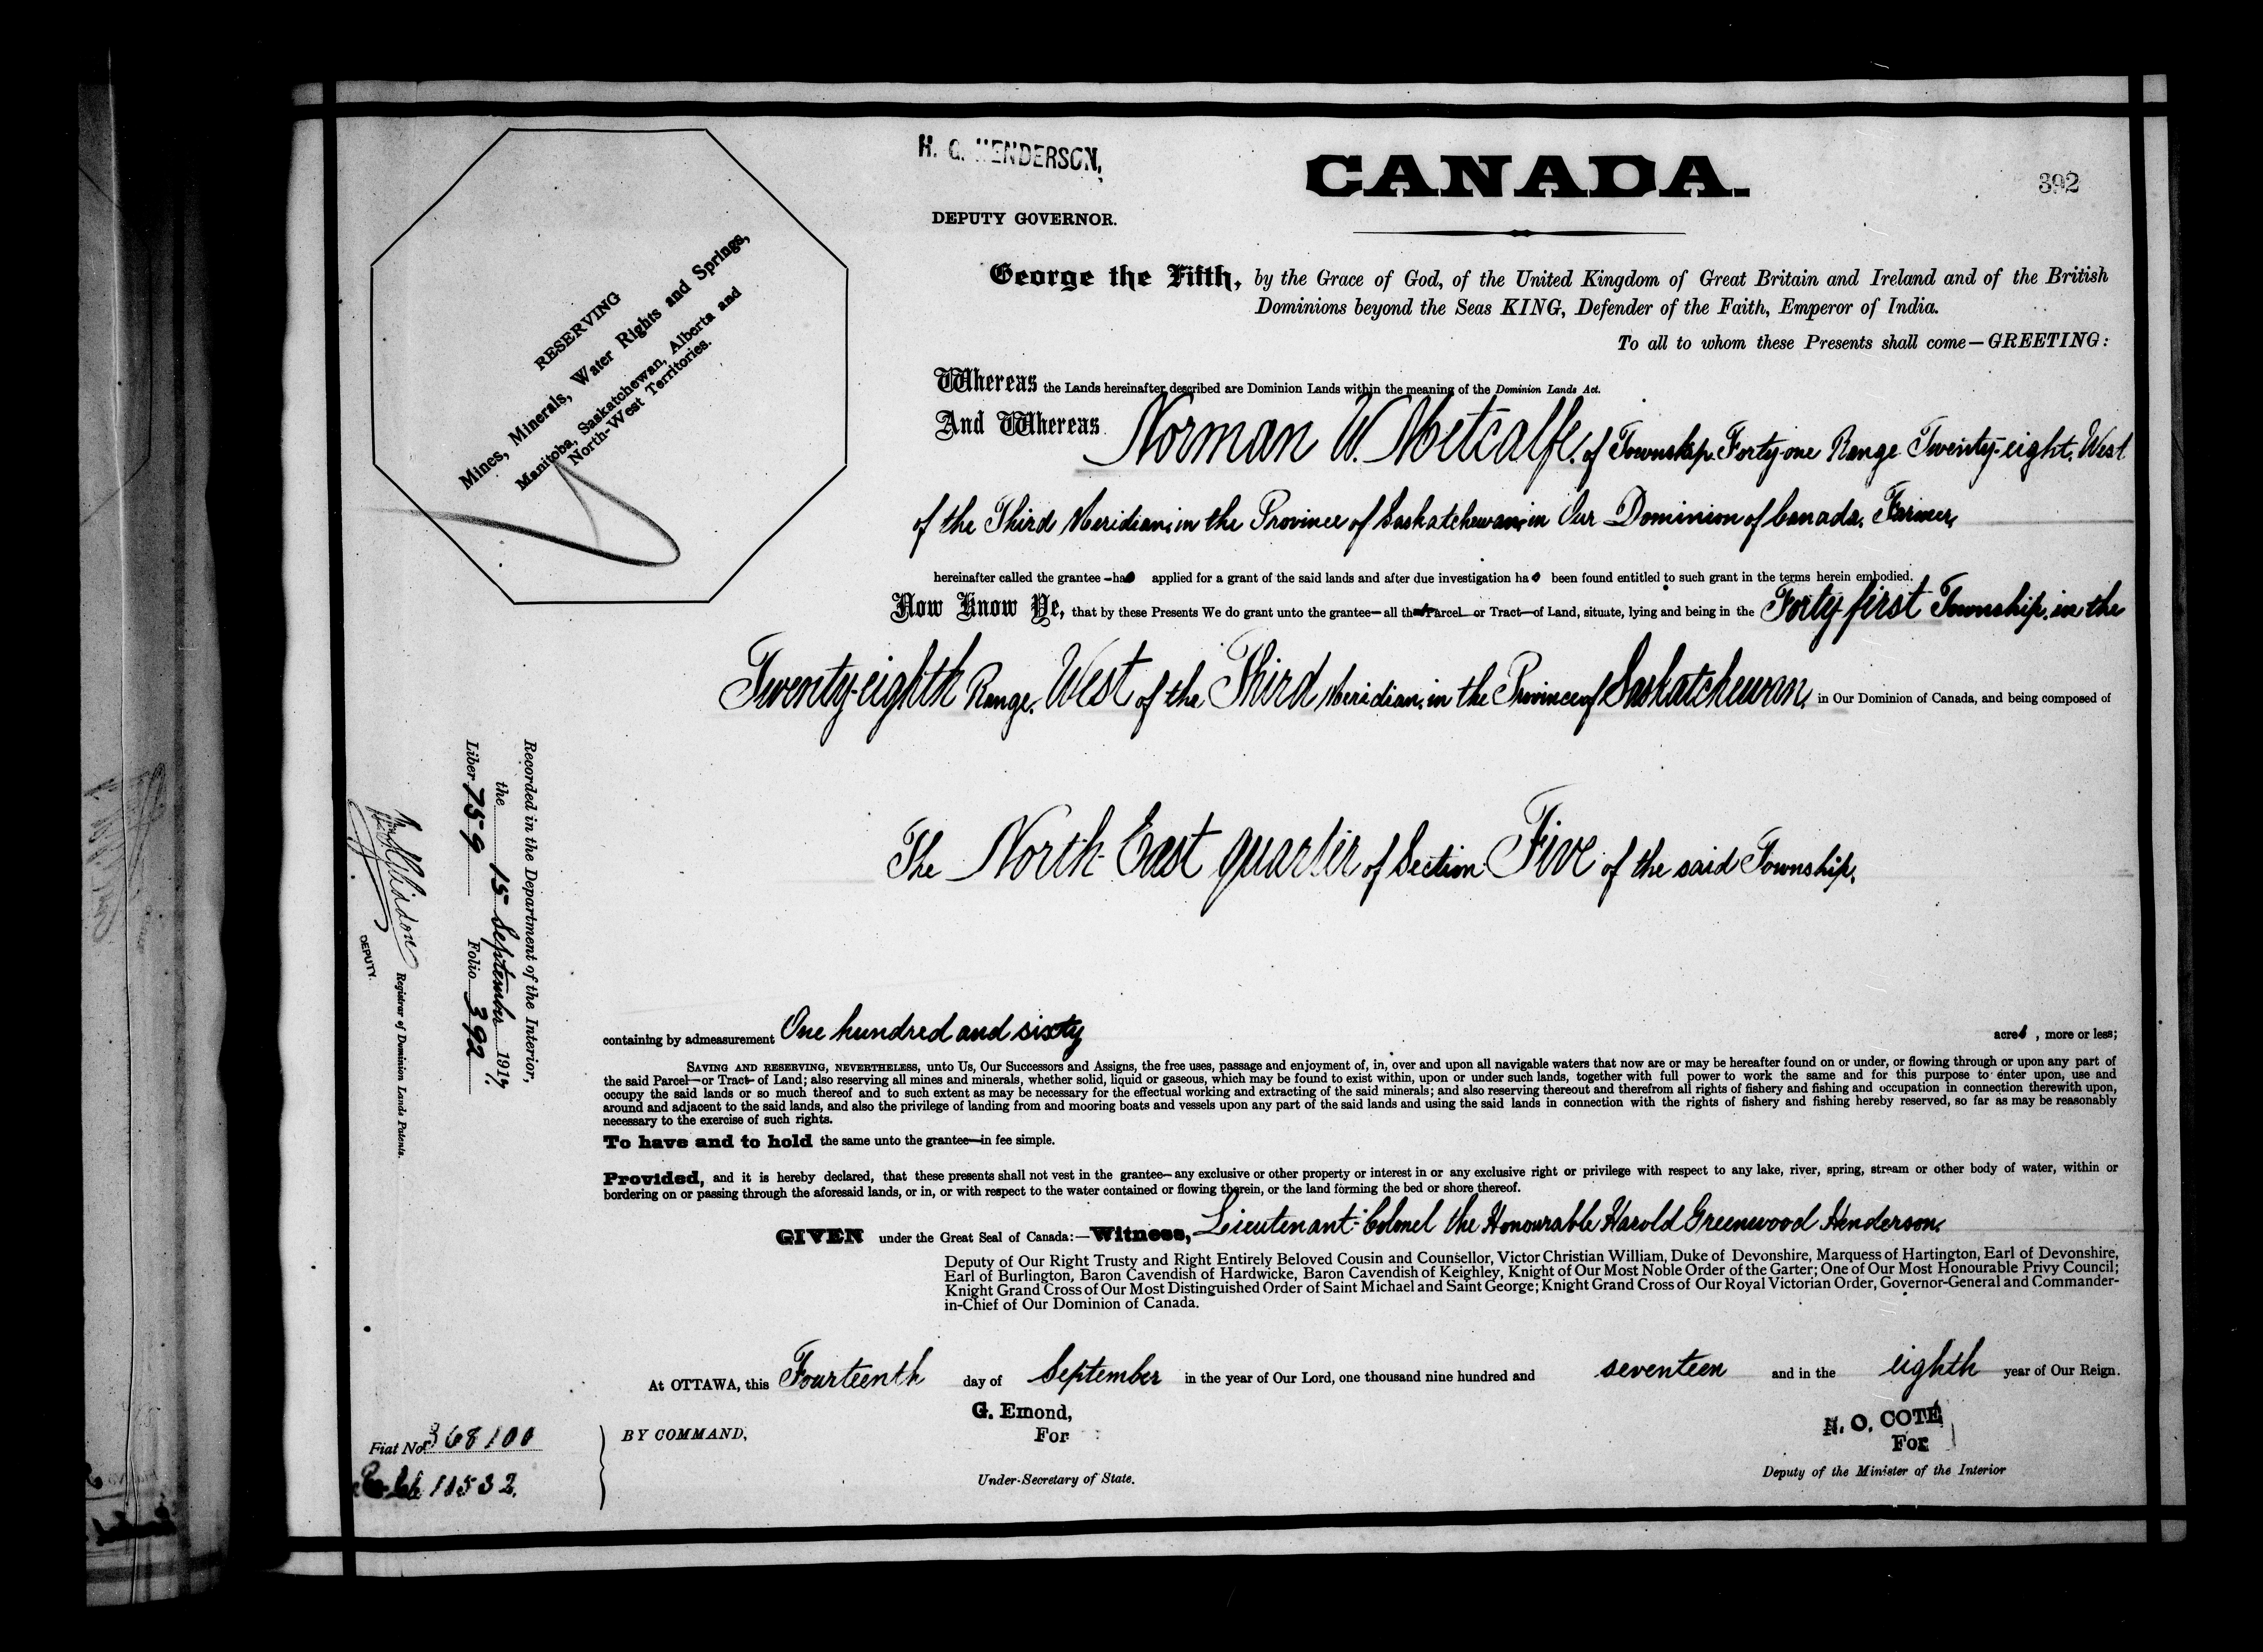 H. G. HENDERSON,
DEPUTY GOVERNOR.
CANADA.
392
RESERVING
Mines, Minerals, Water Rights and Springs,
Manitoba, Saskatchewan, Alberta and
North-West Territories.
George the Fifth, by the Grace of God, of the United Kingdom of Great Britain and Ireland and of the British
Dominions beyond the Seas KING, Defender of the Faith, Emperor of India.
To all to whom these Presents shall come—GREETING:
Whereas the Lands hereinafter described are Dominion Lands within the meaning of the Dominion Lands Act.
And Whereas Norman W. Metcalfe, of Township Forty-one Range Twenty-eight, West
of the Third Meridian, in the Province of Saskatchewan, in Our Dominion of Canada, Farmer,
hereinafter called the grantee—has applied for a grant of the said lands and after due investigation has been found entitled to such grant in the terms herein embodied.
Now Know Ye, that by these Presents We do grant unto the grantee—all that Parcel or Tract—of Land, situate, lying and being in the Forty first Township, in the
Twenty-eighth Range, West of the Third Meridian, in the Province of Saskatchewan, in Our Dominion of Canada, and being composed of
The North East quarter of Section Five of the said Township,
containing by admeasurement One hundred and sixty acres, more or less;
SAVING AND RESERVING, NEVERTHELESS, unto Us, Our Successors and Assigns, the free uses, passage and enjoyment of, in, over and upon all navigable waters that now are or may be hereafter found on or under, or flowing through or upon any part of
the said Parcel—or Tract—of Land; also reserving all mines and minerals, whether solid, liquid or gaseous, which may be found to exist within, upon or under such lands, together with full power to work the same and for this purpose to enter upon, use and
occupy the said lands or so much thereof and to such extent as may be necessary for the effectual working and extracting of the said minerals; and also reserving thereout and therefrom all rights of fishery and fishing and occupation in connection therewith upon,
around and adjacent to the said lands, and also the privilege of landing from and mooring boats and vessels upon any part of the said lands and using the said lands in connection with the rights of fishery and fishing hereby reserved, so far as may be reasonably
necessary to the exercise of such rights.
To have and to hold the same unto the grantee—in fee simple.
Provided, and it is hereby declared, that these presents shall not vest in the grantee—any exclusive or other property or interest in or any exclusive right or privilege with respect to any lake, river, spring, stream or other body of water, within or
bordering on or passing through the aforesaid lands, or in, or with respect to the water contained or flowing therein, or the land forming the bed or shore thereof.
GIVEN under the Great Seal of Canada:—Witness, Lieutenant-Colonel the Honourable Harold Greenwood Henderson,
Deputy of Our Right Trusty and Right Entirely Beloved Cousin and Counsellor, Victor Christian William, Duke of Devonshire, Marquess of Hartington, Earl of Devonshire,
Earl of Burlington, Baron Cavendish of Hardwicke, Baron Cavendish of Keighley, Knight of Our Most Noble Order of the Garter; One of Our Most Honourable Privy Council;
Knight Grand Cross of Our Most Distinguished Order of Saint Michael and Saint George; Knight Grand Cross of Our Royal Victorian Order, Governor-General and Commander-
in-Chief of Our Dominion of Canada.
At OTTAWA, this Fourteenth day of September in the year of Our Lord, one thousand nine hundred and seventeen and in the eighth year of Our Reign.
BY COMMAND,
G. Emond,
For
Under-Secretary of State.
N. O. COTÉ
For
Deputy of the Minister of the Interior
Recorded in the Department of the Interior,
the 15 September 1917,
Liber 759 Folio 392
Registrar of Dominion Lands Patents.
DEPUTY.
Fiat No. 368100
11532.